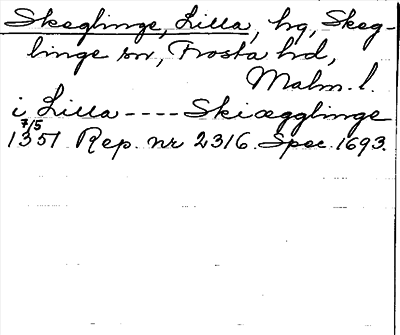 Skeglinge, Lilla, hg, Skeg-
linge sn, Frosta hd,
Malm. l.
i Lilla ---- Skiægglinge
7/5
1351 Rep. nr 2316. Spec. 1693.